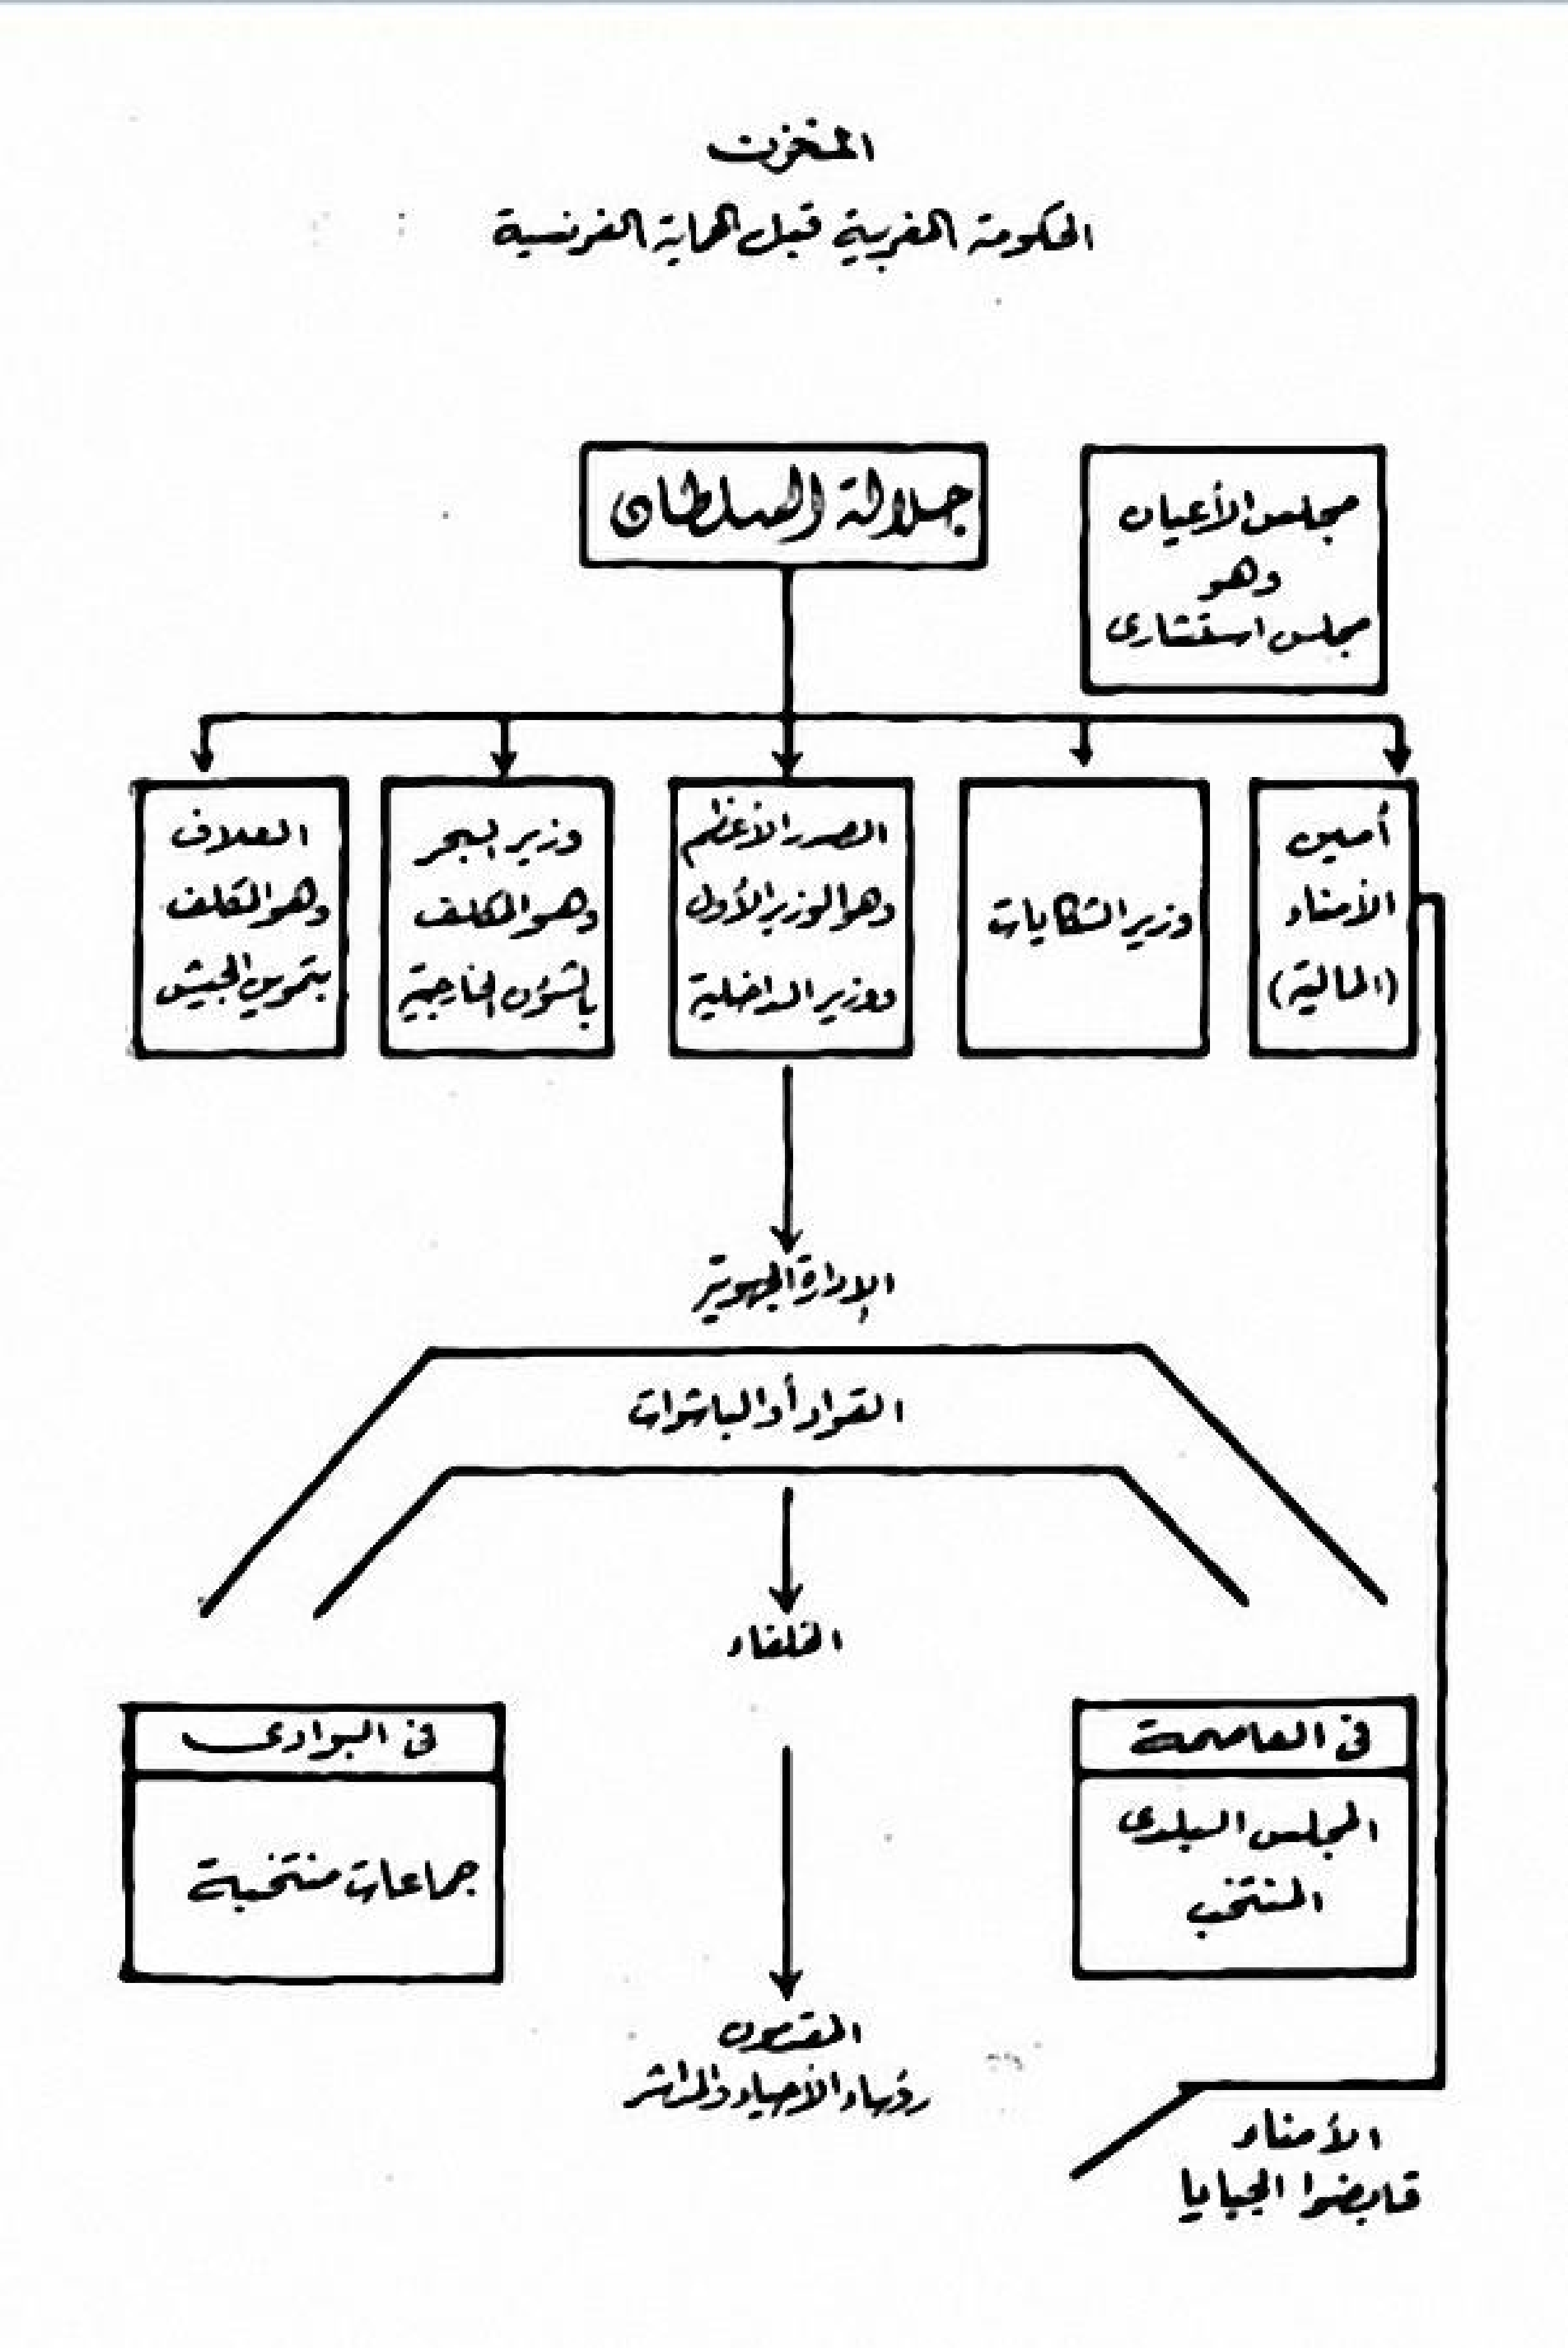 المخزن
الحكومة المغربية قبل الحماية الفرنسية
جلالة السلطان
مجلس الأعيان
وهو
مجلس استشارى
أمين
الأمناء
(المالية)
وزير الشكايات
الصدر الأعظم
وهو الوزير الأول
ووزير الداخلية
وزير البحر
وهو المكلف
بالشؤن الخارجية
العلاف
وهو المكلف
بتموين الجيش
الإدارة الجهوية
القواد أو الباشوات
الخلفاء
فى العاصمة
المجلس البلدى
المنتخب
فى البوادى
جماعات منتخبة
المقدمون
رؤساء الأحياء والمداشر
الأمناء
قابضوا الجبايا